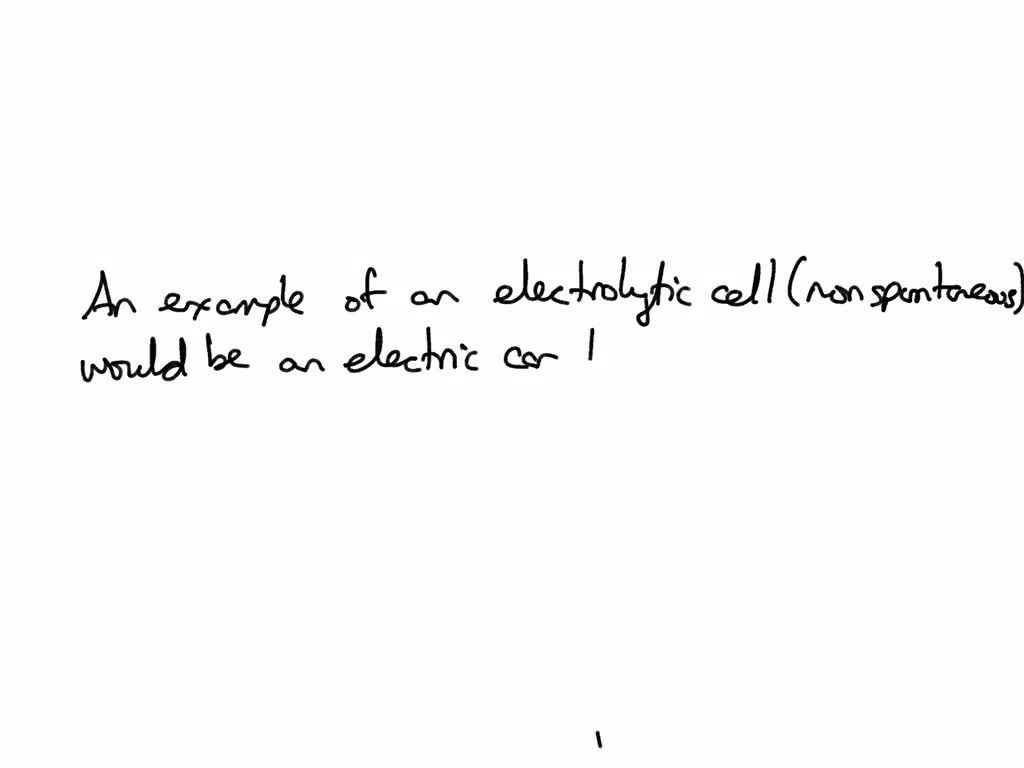 An example of an electrolytic cell (nonspontaneous)
would be an electric car